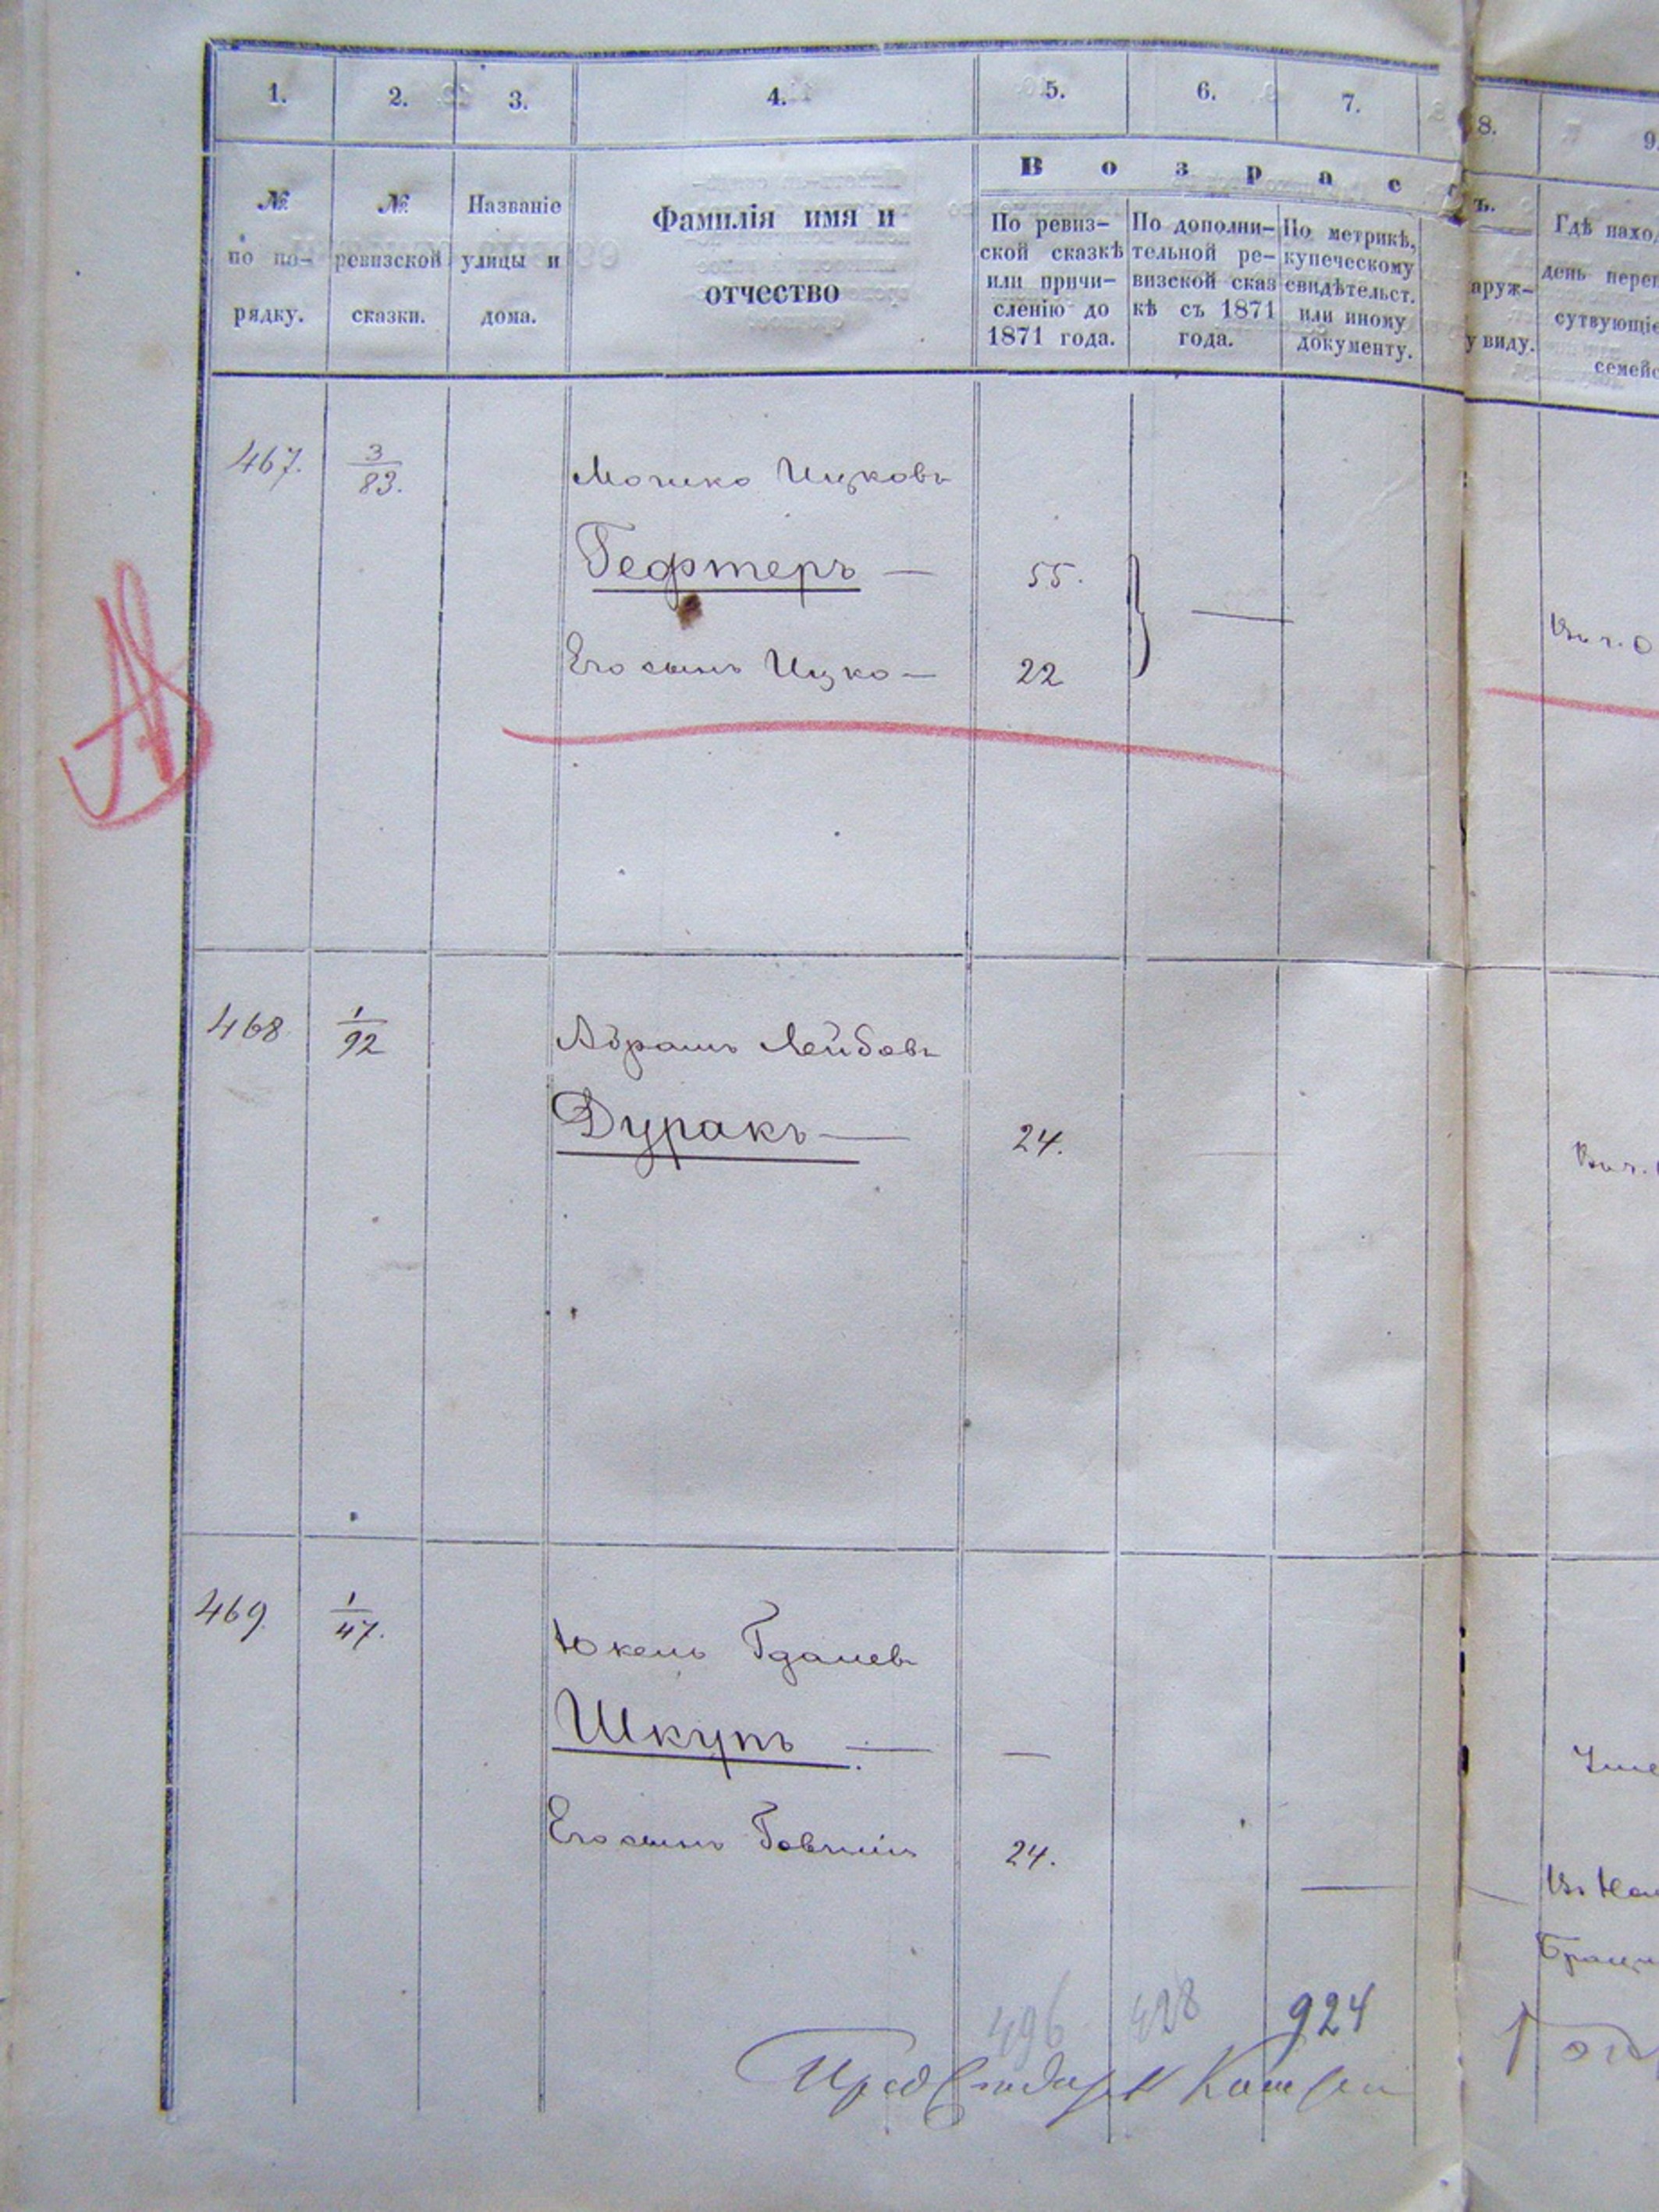 1. 2. 3. 4. 5. 6. 7. 8. 9.
№ по по- рядку.
№ ревизской сказки.
Названіе улицы и дома.
Фамилія имя и
отчество
Возрас
ъ.
По ревиз-
ской сказкѣ
или причи-
сленію до
1871 года.
По дополни-
тельной ре-
визской сказ
кѣ съ 1871
года.
По метрикѣ,
купеческому
свидѣтельст.
или иному
документу.
аруж-
у виду.
Гдѣ нахо
день переп
сутвующіе
семейс
467. 3/83. Мошко Ицковъ
Гефтеръ — 55. —
Его сынъ Ицко — 22
Въ г. О
468 1/92 Абрамъ Лейбовъ
Дуракъ — 24.
Въ г.
469. 1/47. Юкель Гдалев
Шкупъ — —
Его сынъ 24. —
496 428 924